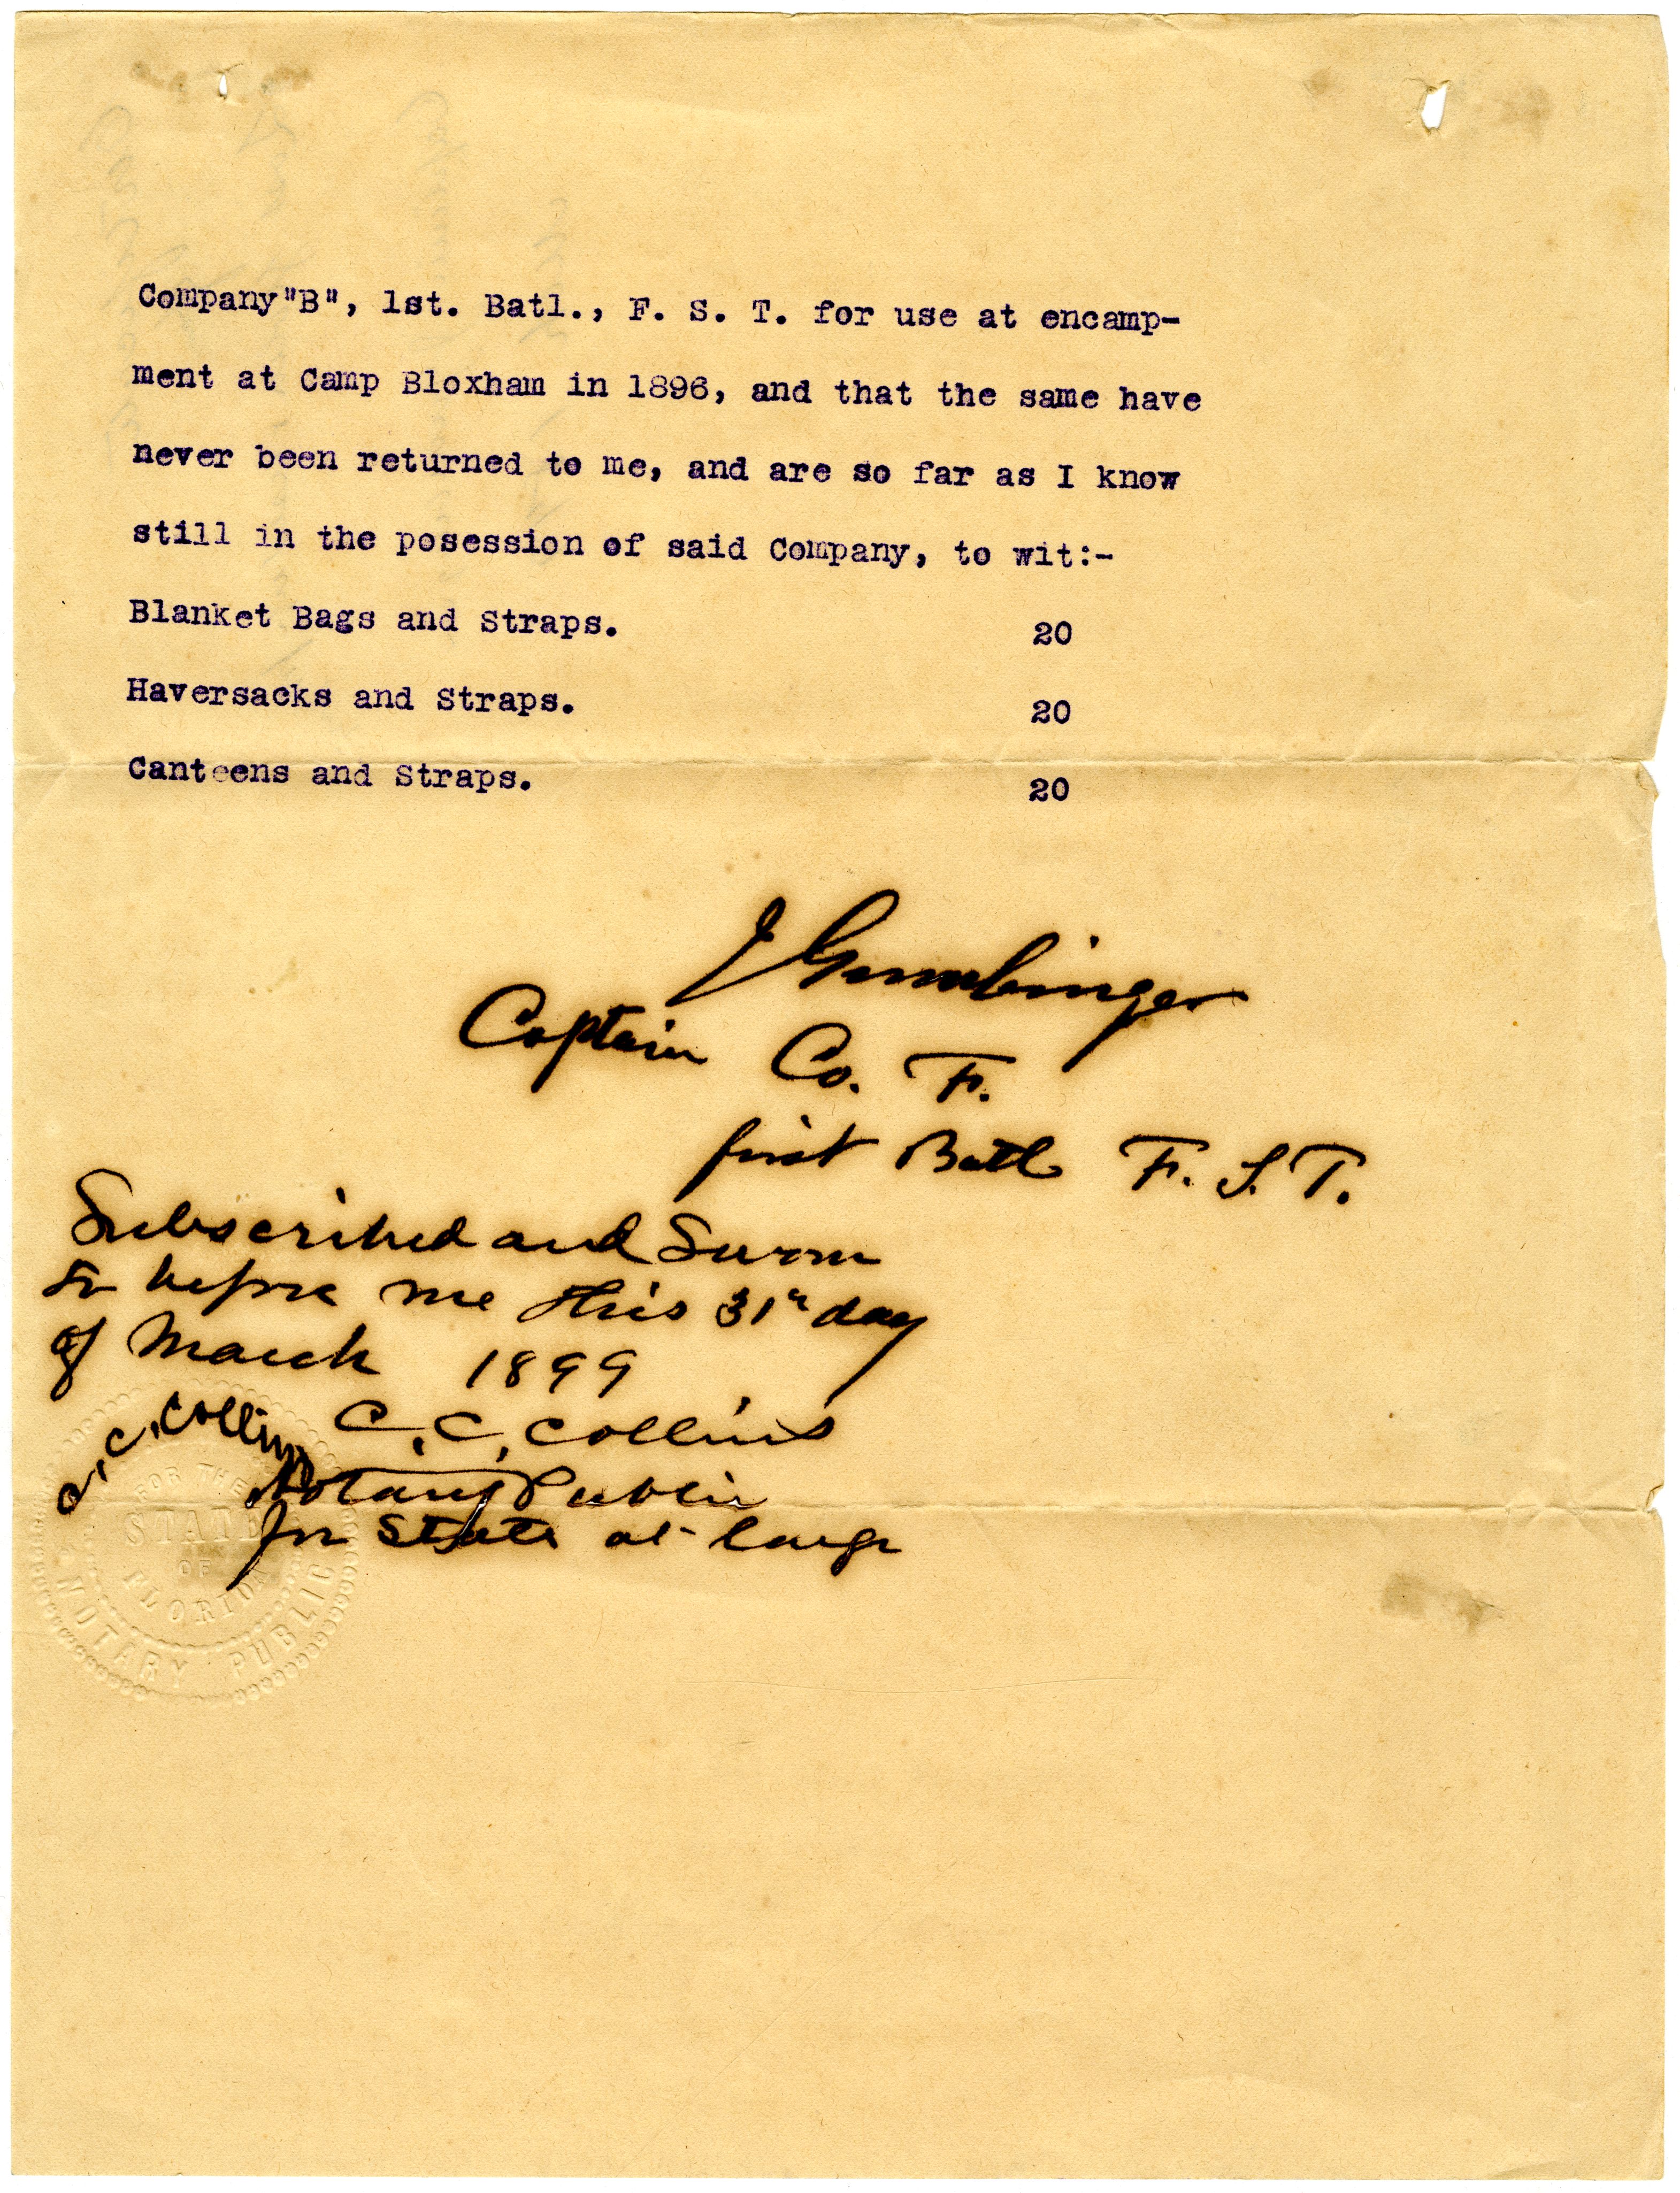 Company "B", 1st. Batl., F. S. T. for use at encamp-
ment at Camp Bloxham in 1896, and that the same have
never been returned to me, and are so far as I know
still in the posession of said Company, to wit:-
Blanket Bags and Straps. 20
Haversacks and Straps. 20
Canteens and Straps. 20
J Gumbinger
Captain Co. F.
first Batl F. S. T.
Subscribed and Sworn
to before me this 31st day
of March 1899
C. C. Collins
C. C. Collins
Notary Public
for State at large
FOR THE
STATE
OF
FLORIDA
NOTARY PUBLIC